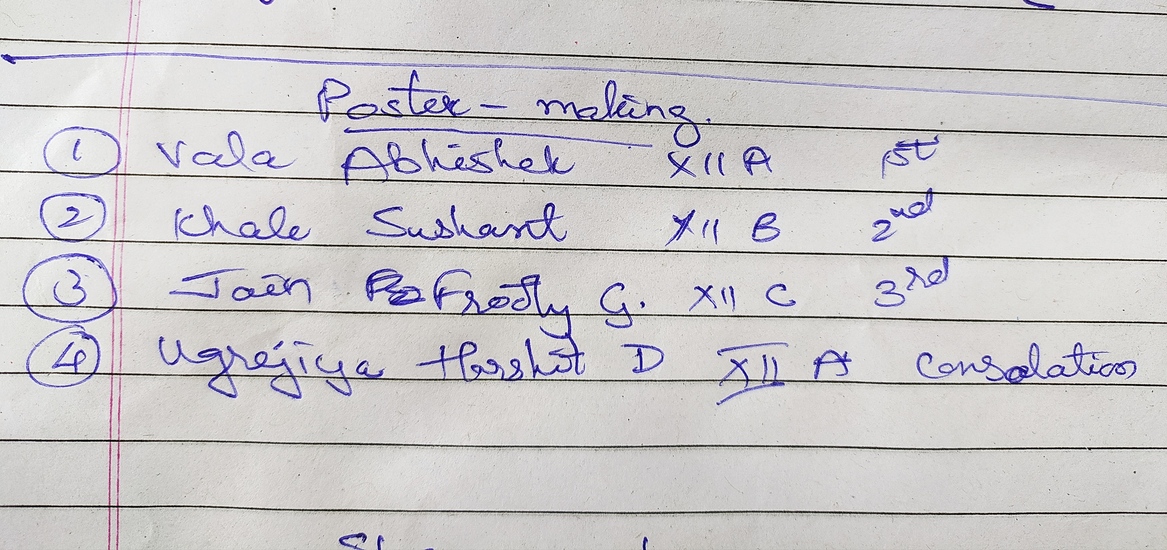 Poster - making.
1 Vala Abhishek XII A 1st
2 Khale Sushant XII B 2nd
3 Jain G. XII C 3rd
4 Ugrejiya Harshit D XII A Consolation